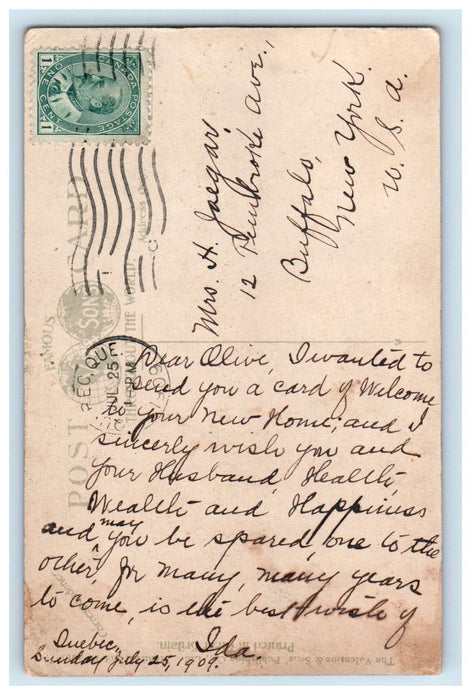 CANADA POSTAGE
ONE CENT
1 1
Mrs. H. Jaegar,
12 Pembroke Ave.,
Buffalo,
New York.
U. S. A.
POST CARD
FAMOUS
SONS
THROUGHOUT THE WORLD
QUEBEC, QUE
JUL 25
PM
Dear Olive, I wanted to
send you a card of Welcome
to your New Home, and I
sincerly wish you and
your Husband, Health,
Wealth and Happiness
and may you be spared, one to the
other, for many, many years
to come, is the best wish of
Ida.
Quebec,
Sunday July 25, 1909.
The Valentine & Sons' Publishing Co
Printed in Great Britain.